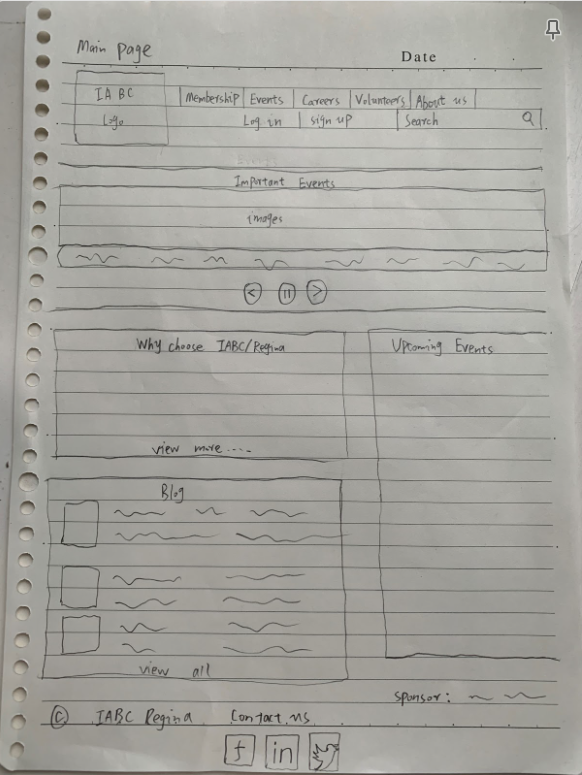 Main Page
Date
IABC
Logo
Membership Events Careers Volunteers About us
Log in sign up Search
Important Events
images
< II >
Why choose IABC/Regina
view more....
Upcoming Events
Blog
view all
Sponsor:
© IABC Regina Contact us
f in